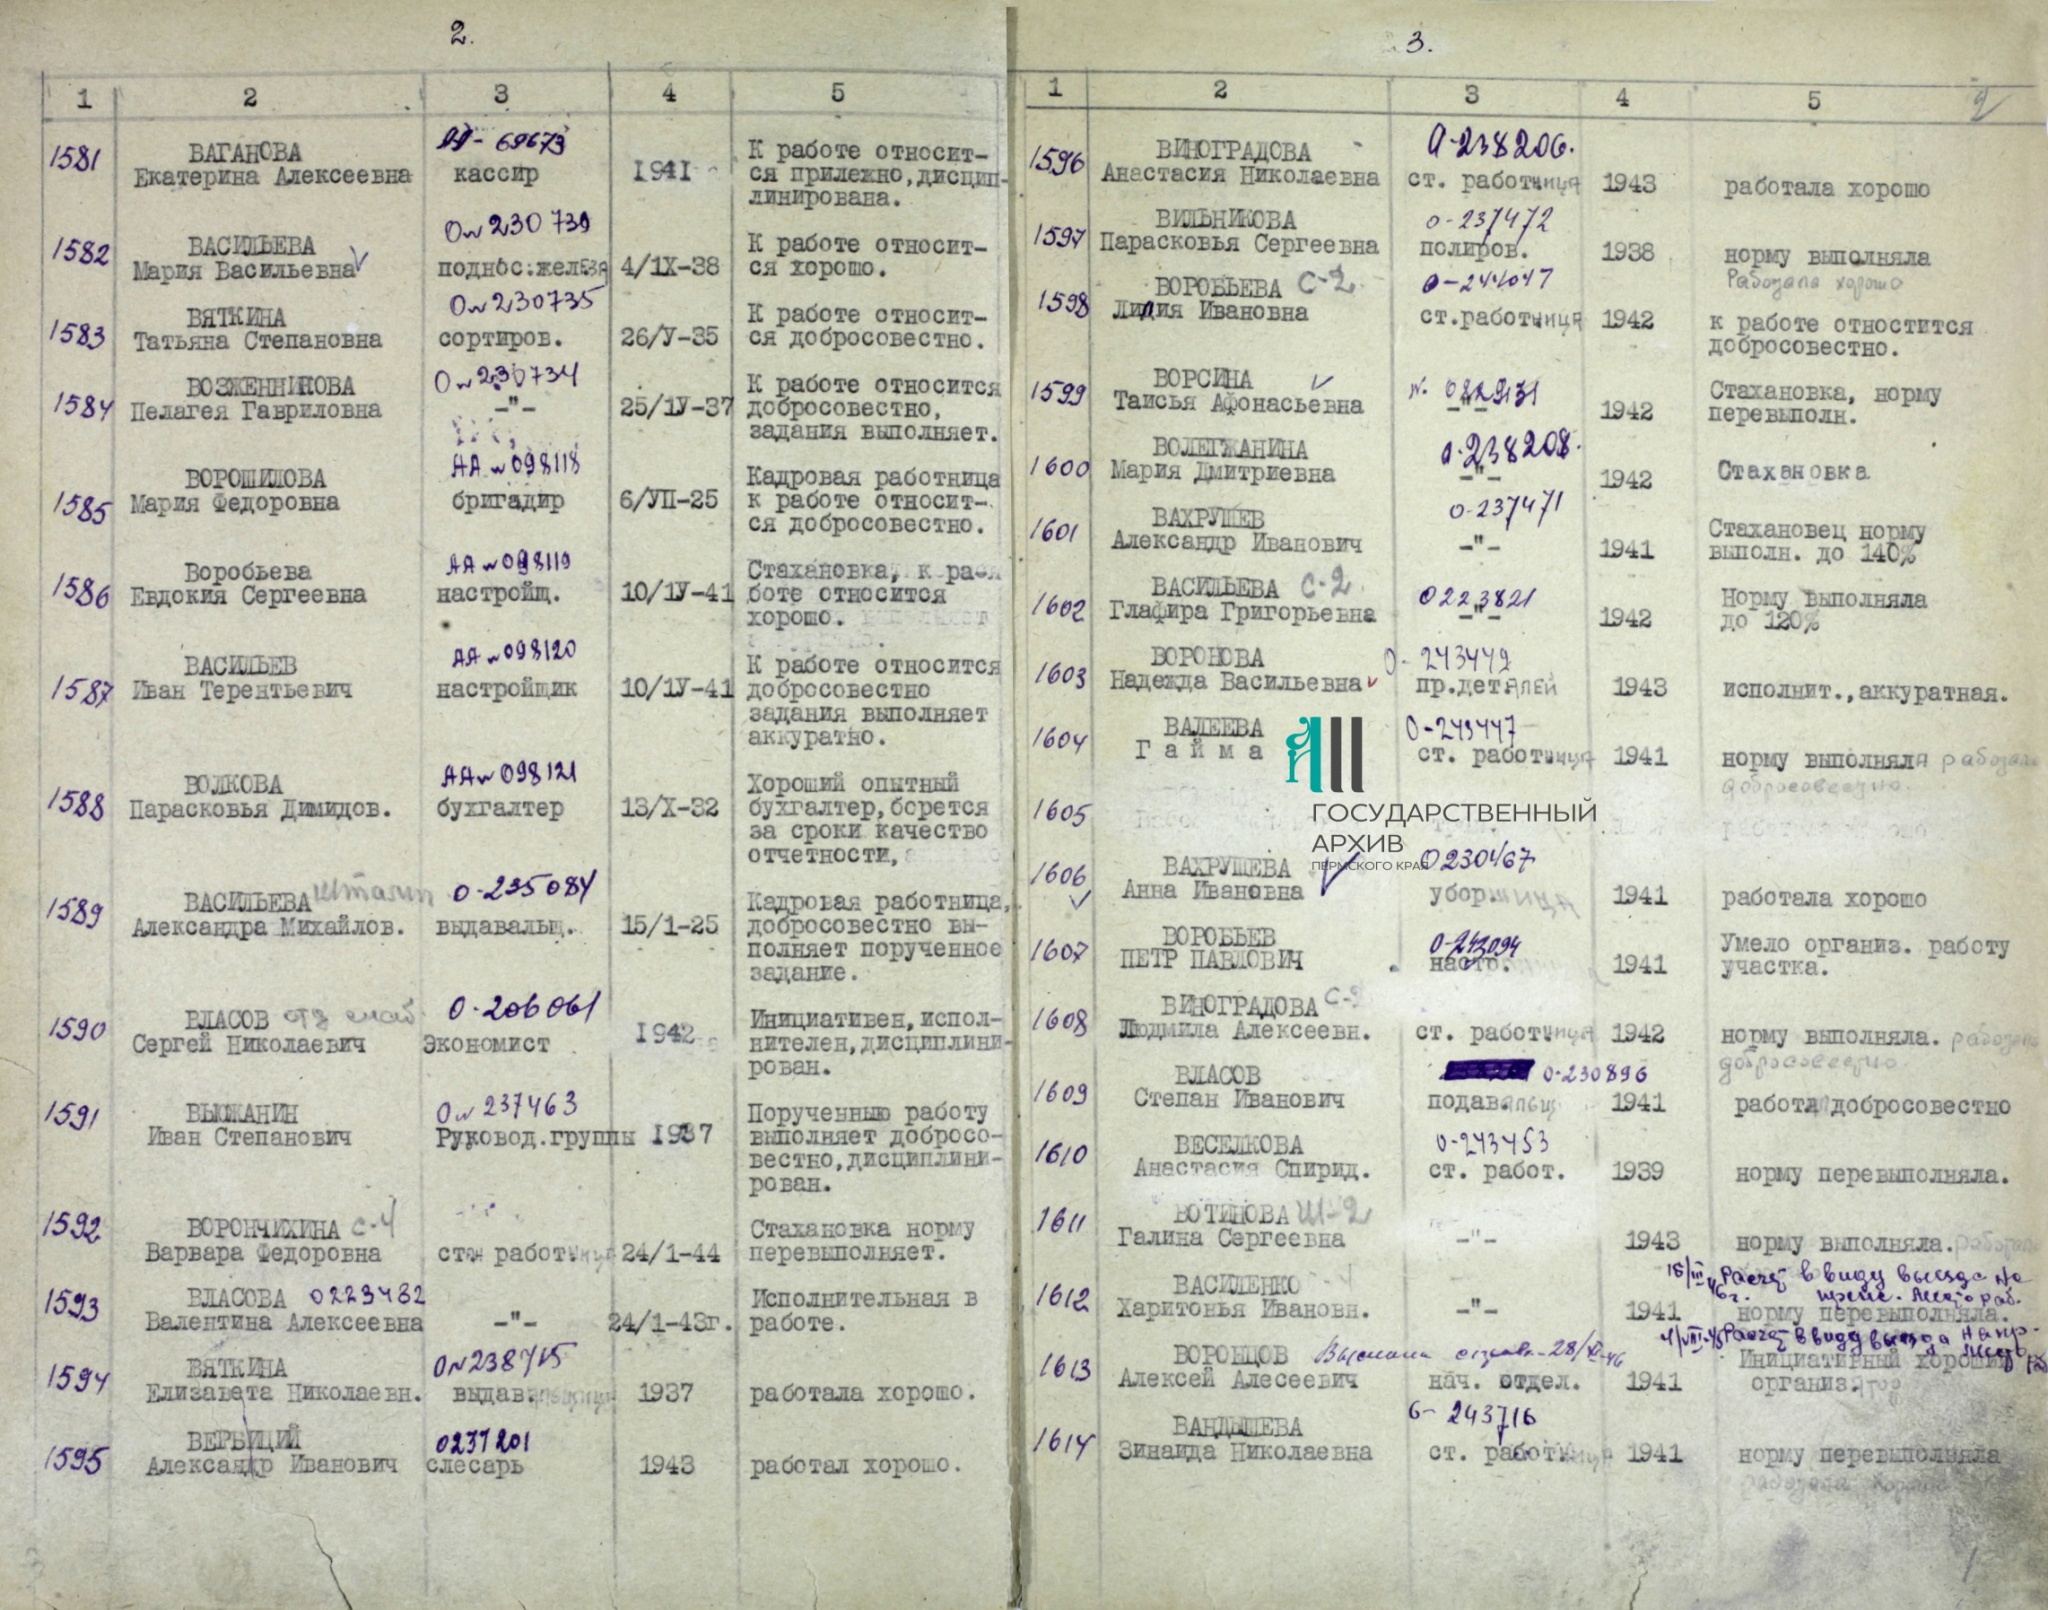 2.
1 2 3 4 5
1581 ВАГАНОВА
Екатерина Алексеевна
69673
кассир
1941
К работе относит-
ся прилежно, дисцип-
линирована.
1582 ВАСИЛЬЕВА
Мария Васильевна
О№230739
поднос.железа
4/1Х-38
К работе относит-
ся хорошо.
1583 ВЯТКИНА
Татьяна Степановна
О№230735
сортиров.
26/У-35
К работе относит-
ся добросовестно.
1584 ВОЗЖЕННИКОВА
Пелагея Гавриловна
О№230734
-"-
25/1У-37
К работе относится
добросовестно,
задания выполняет.
1585 ВОРОШИЛОВА
Мария Федоровна
АА№098118
бригадир
6/УП-25
Кадровая работница
к работе относит-
ся добросовестно.
1586 Воробьева
Евдокия Сергеевна
АА№098119
настройщ.
10/1У-41
Стахановка, к ра-
боте относится
хорошо.
1587 ВАСИЛЬЕВ
Иван Терентьевич
АА№098120
настройщик
10/1У-41
К работе относится
добросовестно
задания выполняет
аккуратно.
1588 ВОЛКОВА
Парасковья Димидов.
АА№098121
бухгалтер
13/Х-32
Хороший опытный
бухгалтер, борется
за сроки качество
отчетности,
1589 ВАСИЛЬЕВА
Александра Михайлов.
О-235084
выдавальщ.
15/1-25
Кадровая работница,
добросовестно вы-
полняет порученное
задание.
1590 ВЛАСОВ отд снаб
Сергей Николаевич
О-206061
Экономист
1942
Инициативен, испол-
нителен, дисциплини-
рован.
1591 ВЬЮЖАНИН
Иван Степанович
О№237463
Руковод.группы
1937
Порученную работу
выполняет добросо-
вестно, дисциплини-
рован.
1592 ВОРОНЧИХИНА С-4
Варвара Федоровна
стан работница
24/1-44
Стахановка норму
перевыполняет.
1593 ВЛАСОВА 0223432
Валентина Алексеевна
-"-
24/1-43г.
Исполнительная в
работе.
1594 ВЯТКИНА
Елизавета Николаевн.
О№238715
выдав.
1937
работала хорошо.
1595 ВЕРБИЦИЙ
Александр Иванович
0237201
слесарь
1943
работал хорошо.
3.
1 2 3 4 5
1596 ВИНОГРАДОВА
Анастасия Николаевна
О-238206.
ст. работница
1943
работала хорошо
1597 ВИЛЬНИКОВА
Парасковья Сергеевна
О-237472
полиров.
1938
норму выполняла
Работала хорошо
1598 ВОРОБЬЕВА С-2
Лидия Ивановна
О-244047
ст.работница
1942
к работе отностится
добросовестно.
1599 ВОРСИНА
Таисья Афонасьевна
-"-
1942
Стахановка, норму
перевыполн.
1600 ВОЛЕГЖАНИНА
Мария Дмитриевна
О-238208.
-"-
1942
Стахановка
1601 ВАХРУШЕВ
Александр Иванович
О-237471
-"-
1941
Стахановец норму
выполн. до 140%
1602 ВАСИЛЬЕВА С-2
Глафира Григорьевна
0223821
-"-
1942
Норму выполняла
до 120%
1603 ВОРОНОВА
Надежда Васильевна
О-243449
пр.деталей
1943
исполнит., аккуратная.
1604 ВАЛЕЕВА
Гайма
О-243447
ст. работница
1941
норму выполняла работала
добросовестно.
1605
ГОСУДАРСТВЕННЫЙ
АРХИВ
ПЕРМСКОГО КРАЯ
1606 ВАХРУШЕВА
Анна Ивановна
0230467
уборщица
1941
работала хорошо
1607 ВОРОБЬЕВ
ПЕТР ПАВЛОВИЧ
О-243094
настр.
1941
Умело организ. работу
участка.
1608 ВИНОГРАДОВА С-2
Людмила Алексеевн.
ст. работница
1942
норму выполняла. работала
добросовестно
1609 ВЛАСОВ
Степан Иванович
О-230896
подавальщ
1941
работал добросовестно
1610 ВЕСЕЛКОВА
Анастасия Спирид.
О-243453
ст. работ.
1939
норму перевыполняла.
1611 ВОТИНОВА Ш-2
Галина Сергеевна
-"-
1943
норму выполняла. работала
1612 ВАСИЛЕНКО
Харитонья Ивановн.
-"-
1941
Расчет ввиду выезда на
норму перевыполняла.
1613 ВОРОНЦОВ
Алексей Алесеевич
нач. отдел.
1941
Расчет ввиду выезда на
Инициативный хороший
организатор
1614 ВАНДЫШЕВА
Зинаида Николаевна
243716
ст. работница
1941
норму перевыполняла
работала хорошо